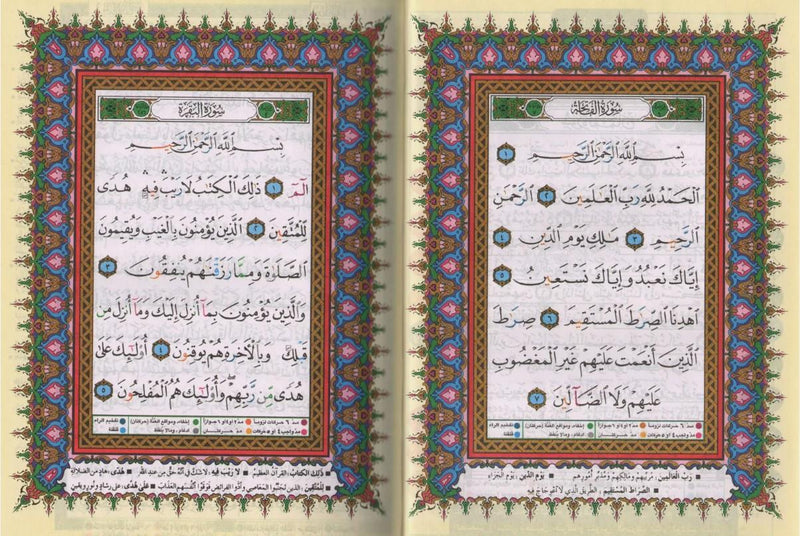 سُورَةُ الفَاتِحَة
بِسْمِ ٱللَّهِ ٱلرَّحْمَٰنِ ٱلرَّحِيمِ ١
ٱلْحَمْدُ لِلَّهِ رَبِّ ٱلْعَٰلَمِينَ ٢ ٱلرَّحْمَٰنِ
ٱلرَّحِيمِ ٣ مَٰلِكِ يَوْمِ ٱلدِّينِ ٤
إِيَّاكَ نَعْبُدُ وَإِيَّاكَ نَسْتَعِينُ ٥
ٱهْدِنَا ٱلصِّرَٰطَ ٱلْمُسْتَقِيمَ ٦ صِرَٰطَ
ٱلَّذِينَ أَنْعَمْتَ عَلَيْهِمْ غَيْرِ ٱلْمَغْضُوبِ
عَلَيْهِمْ وَلَا ٱلضَّآلِّينَ ٧
مدّ ٦ حركات لزوماً مدّ ٢ أو ٤ أو ٦ جوازاً إخفاء، ومواقع الغنّة (حركتان) تفخيم الراء
مدّ واجب ٤ أو ٥ حركات مدّ حركتان إدغام، وما لا يلفظ قلقلة
رَبِّ العَالَمِينَ: مربيهم ومالكهم ومدبر أمورهم يَوْمِ الدِّينِ: يوم الجزاء
الصِّرَاطَ المُسْتَقِيمَ: الطريق الذي لا اعوجاج فيه
سُورَةُ البَقَرَة
بِسْمِ ٱللَّهِ ٱلرَّحْمَٰنِ ٱلرَّحِيمِ
الٓمٓ ١ ذَٰلِكَ ٱلْكِتَٰبُ لَا رَيْبَ ۛ فِيهِ ۛ هُدًى
لِّلْمُتَّقِينَ ٢ ٱلَّذِينَ يُؤْمِنُونَ بِٱلْغَيْبِ وَيُقِيمُونَ
ٱلصَّلَوٰةَ وَمِمَّا رَزَقْنَٰهُمْ يُنفِقُونَ ٣
وَٱلَّذِينَ يُؤْمِنُونَ بِمَآ أُنزِلَ إِلَيْكَ وَمَآ أُنزِلَ مِن
قَبْلِكَ وَبِٱلْءَاخِرَةِ هُمْ يُوقِنُونَ ٤ أُو۟لَٰٓئِكَ عَلَىٰ
هُدًى مِّن رَّبِّهِمْ ۖ وَأُو۟لَٰٓئِكَ هُمُ ٱلْمُفْلِحُونَ ٥
مدّ ٦ حركات لزوماً مدّ ٢ أو ٤ أو ٦ جوازاً إخفاء، ومواقع الغنّة (حركتان) تفخيم الراء
مدّ واجب ٤ أو ٥ حركات مدّ حركتان إدغام، وما لا يلفظ قلقلة
ذَلِكَ الكِتَابُ: القرآن العظيم لَا رَيْبَ فِيهِ: لا شك في أنه حق من عند الله هُدًى: هادٍ من الضلالة
لِلْمُتَّقِينَ: الذين تجنبوا المعاصي وأدوا الفرائض فوقوا أنفسهم العذاب عَلَى هُدًى: على رشادٍ ونورٍ ويقين